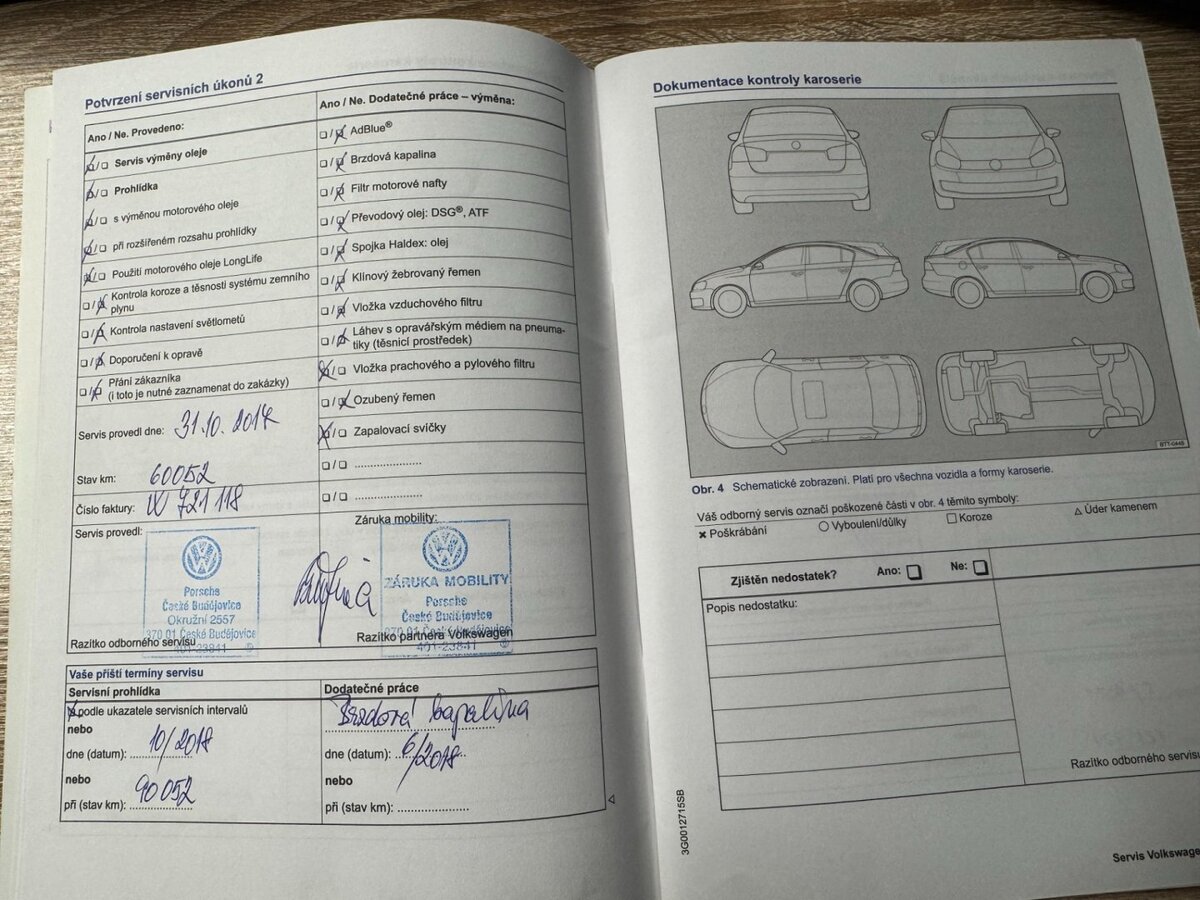 Potvrzení servisních úkonů 2
Ano / Ne. Provedeno:
Servis výměny oleje
Prohlídka
s výměnou motorového oleje
při rozšířeném rozsahu prohlídky
Použití motorového oleje LongLife
Kontrola koroze a těsnosti systému zemního
plynu
Kontrola nastavení světlometů
Doporučení k opravě
Přání zákazníka
(i toto je nutné zaznamenat do zakázky)
Servis provedl dne: 31.10.2017
Stav km: 60052
Číslo faktury: W 721 118
Servis provedl:
Porsche
České Budějovice
Okružní 2557
370 01 České Budějovice
401-23841
Razítko odborného servisu
Ano / Ne. Dodatečné práce – výměna:
AdBlue®
Brzdová kapalina
Filtr motorové nafty
Převodový olej: DSG®, ATF
Spojka Haldex: olej
Klínový žebrovaný řemen
Vložka vzduchového filtru
Láhev s opravářským médiem na pneuma-
tiky (těsnicí prostředek)
Vložka prachového a pylového filtru
Ozubený řemen
Zapalovací svíčky
Záruka mobility:
ZÁRUKA MOBILITY
Porsche
České Budějovice
370 01 České Budějovice
401-23841
Razítko partnera Volkswagen
Vaše příští termíny servisu
Servisní prohlídka
podle ukazatele servisních intervalů
nebo
dne (datum): 10/2018
nebo
při (stav km): 90052
Dodatečné práce
Brzdová kapalina
dne (datum): 6/2018
nebo
při (stav km):
Dokumentace kontroly karoserie
BTT-0445
Obr. 4 Schematické zobrazení. Platí pro všechna vozidla a formy karoserie.
Váš odborný servis označí poškozené části v obr. 4 těmito symboly:
× Poškrábání ○ Vyboulení/důlky □ Koroze △ Úder kamenem
Zjištěn nedostatek? Ano: Ne:
Popis nedostatku:
Razítko odborného servisu
3G0012715SB
Servis Volkswage